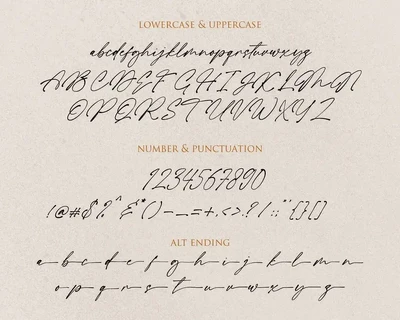 LOWERCASE & UPPERCASE
abcdefghijklmnopqrstuvwxyz
ABCDEFGHIJKLMN
OPQRSTUVWXYZ
NUMBER & PUNCTUATION
1234567890
!@#$%^&*()-_=+,<>.?/:;"{}[]
ALT ENDING
a b c d e f g h i j k l m n
o p q r s t u v w x y z